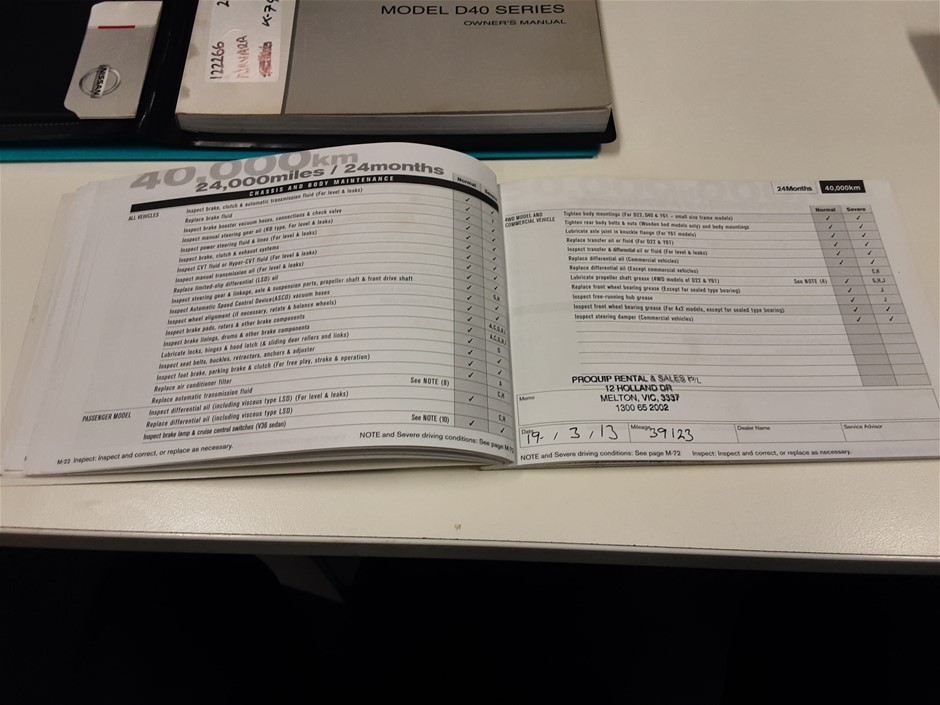 MODEL D40 SERIES
OWNER'S MANUAL
122266
NAVARA
NISSAN
40,000km
24,000miles / 24months
CHASSIS AND BODY MAINTENANCE
Normal
ALL VEHICLES
Inspect brake, clutch & automatic transmission fluid (For level & leaks)
Replace brake fluid
Inspect brake booster vacuum hoses, connections & check valve
Inspect manual steering gear oil (RB type, For level & leaks)
Inspect power steering fluid & lines (For level & leaks)
Inspect brake, clutch & exhaust systems
Inspect CVT fluid or Hyper-CVT fluid (For level & leaks)
Inspect manual transmission oil (For level & leaks)
Replace limited-slip differential (LSD) oil
Inspect steering gear & linkage, axle & suspension parts, propeller shaft & front drive shaft
Inspect Automatic Speed Control Device(ASCD) vacuum hoses
Inspect wheel alignment (if necessary, rotate & balance wheels)
Inspect brake pads, rotors & other brake components
Inspect brake linings, drums & other brake components
Lubricate locks, hinges & hood latch (& sliding door rollers and links)
Inspect seat belts, buckles, retractors, anchors & adjuster
Inspect foot brake, parking brake & clutch (For free play, stroke & operation)
Replace air conditioner filter See NOTE (8)
Replace automatic transmission fluid
PASSENGER MODEL Inspect differential oil (including viscous type LSD) (For level & leaks)
Replace differential oil (including viscous type LSD)
Inspect brake lamp & cruise control switches (V36 sedan) See NOTE (10)
NOTE and Severe driving conditions: See page M-72
M-22 Inspect: Inspect and correct, or replace as necessary.
24Months 40,000km
Normal Severe
4WD MODEL AND
COMMERCIAL VEHICLE
Tighten body mountings (For D22, D40 & Y61 - small size frame models)
Tighten rear body bolts & nuts (Wooden bed models only) and body mountings
Lubricate axle joint in knuckle flange (For Y61 models)
Replace transfer oil or fluid (For D22 & Y61)
Inspect transfer & differential oil or fluid (For level & leaks)
Replace differential oil (Commercial vehicles)
Replace differential oil (Except commercial vehicles) C,H
Lubricate propeller shaft grease (4WD models of D22 & Y61) See NOTE (4) G,H,J
Replace front wheel bearing grease (Except for sealed type bearing) J
Inspect free-running hub grease J
Inspect front wheel bearing grease (For 4x2 models, except for sealed type bearing)
Inspect steering damper (Commercial vehicles)
PROQUIP RENTAL & SALES P/L
12 HOLLAND DR
MELTON, VIC, 3337
1300 65 2002
Memo
Date 19 / 3 / 13 Mileage 39123 Dealer Name Service Advisor
NOTE and Severe driving conditions: See page M-72 Inspect: Inspect and correct, or replace as necessary.